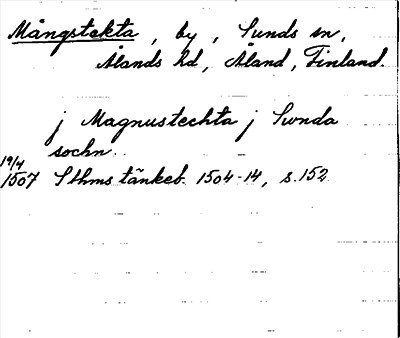 Mångstekta, by, Sunds sn,
Ålands hd, Åland, Finland.
j Magnustechta j Swnda
sochn.
19/4
1507 Sthms tänkeb. 1504-14, s. 152